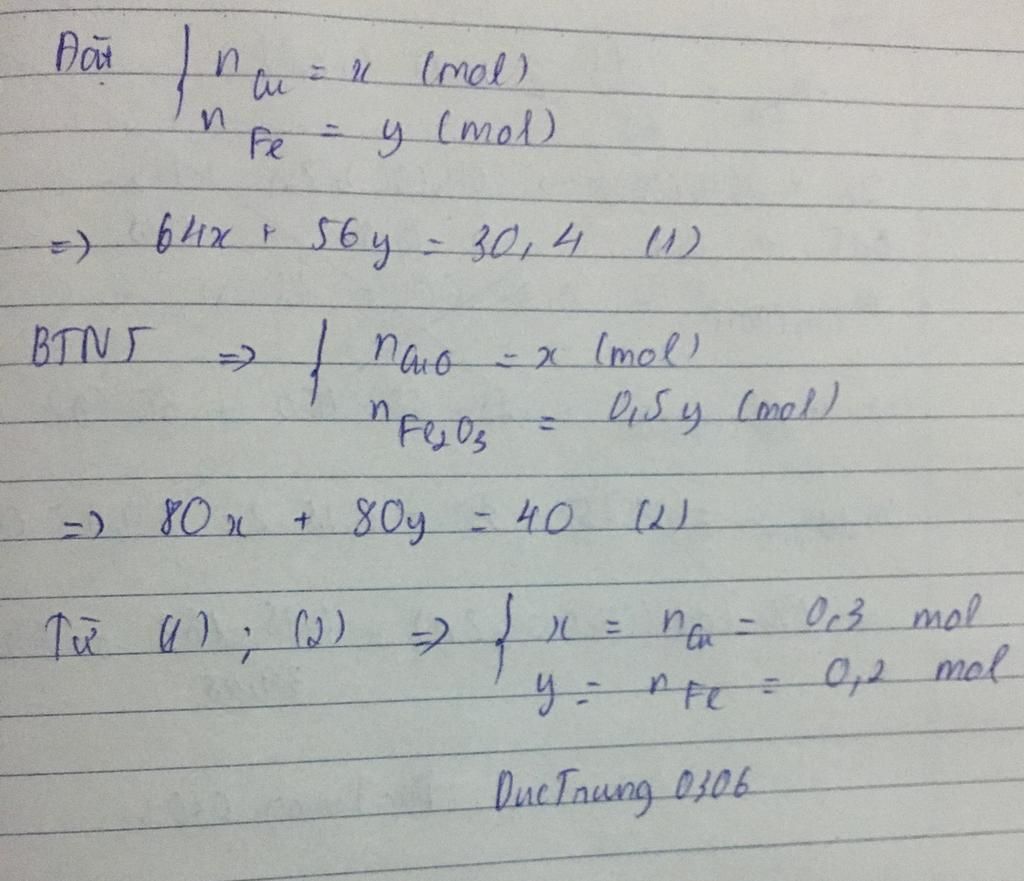 Đặt { n Cu = x (mol)
n Fe = y (mol)
=> 64x + 56y = 30,4 (1)
BTNT => { n CuO = x (mol)
n Fe2O3 = 0,5y (mol)
=> 80x + 80y = 40 (2)
Từ (1) ; (2) => { x = n Cu = 0,3 mol
y = n Fe = 0,2 mol
DucTrung 0306